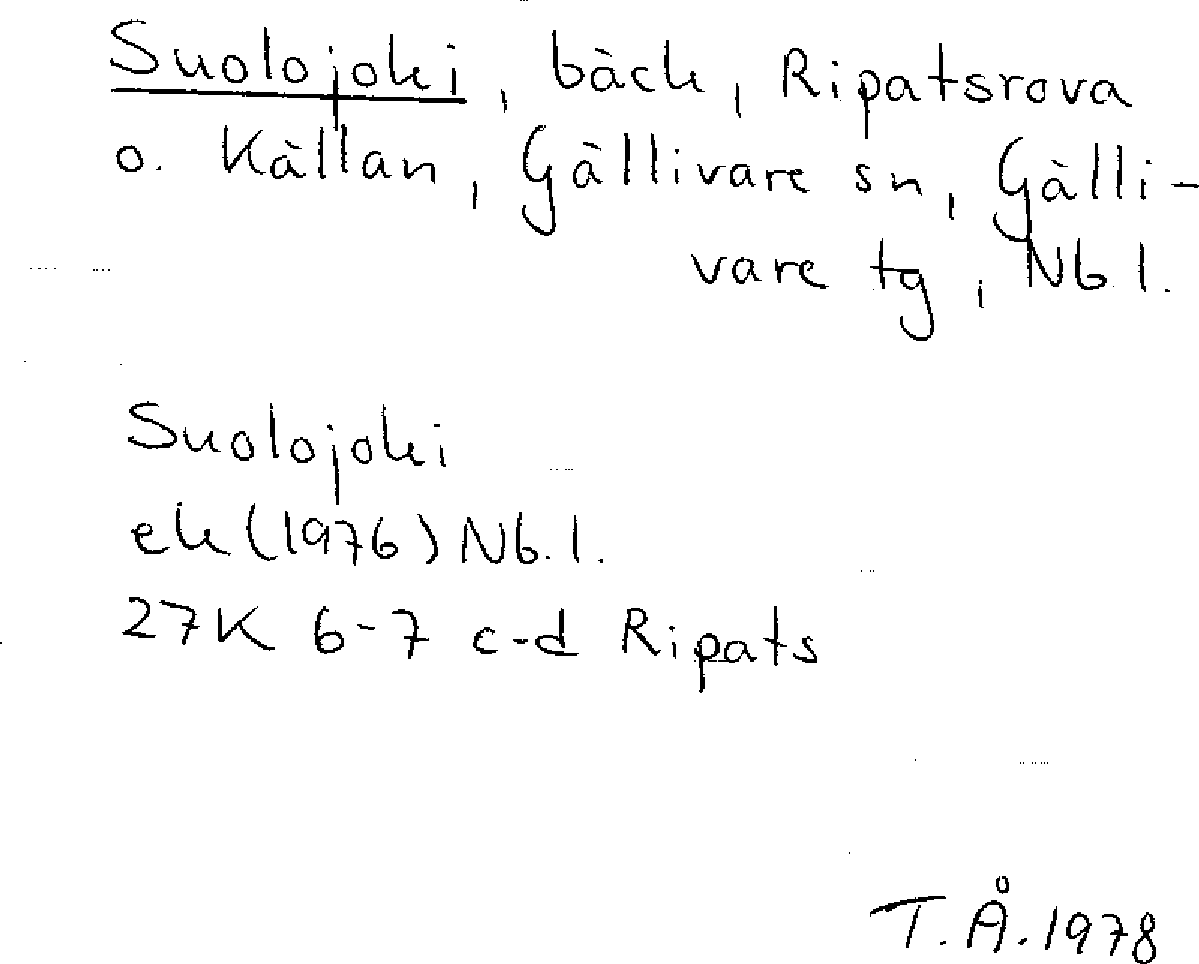 Suolojoki, bäck, Ripatsrova
o. Källan, Gällivare sn, Gälli-
vare tg, Nb.l.
Suolojoki
ek (1976) Nb.l.
27K 6-7 c-d Ripats
T.Å.1978